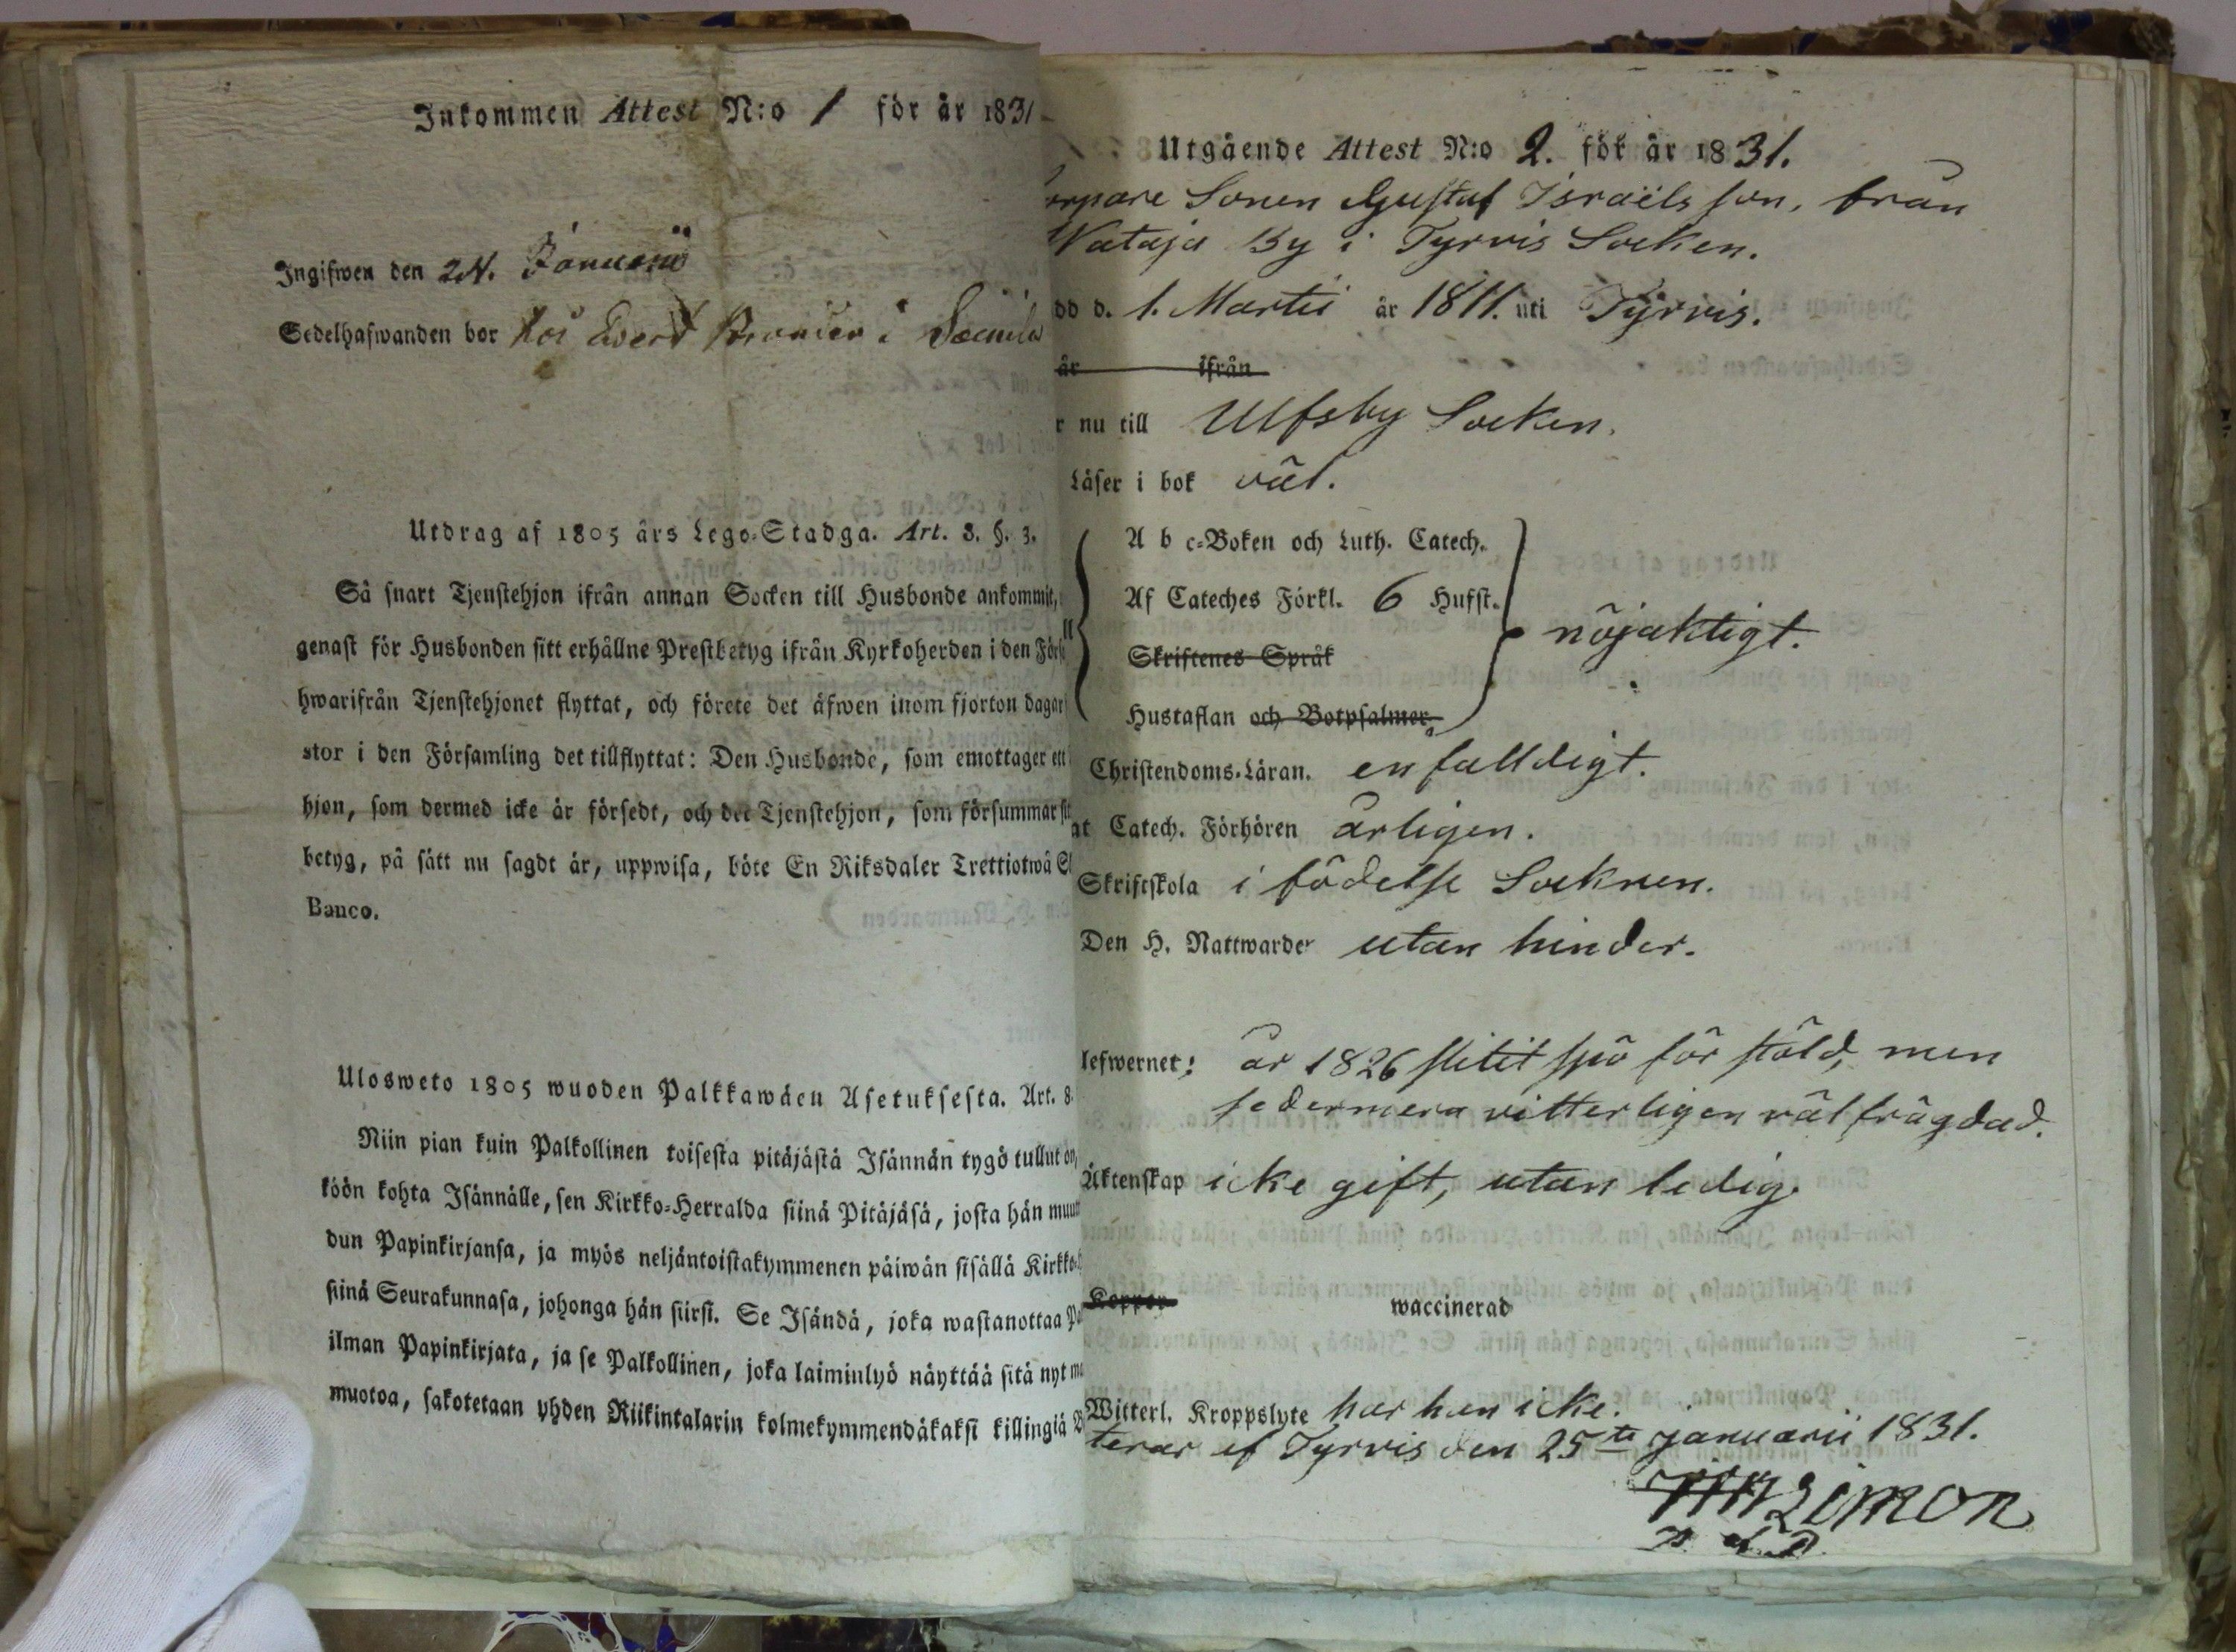 Inkommen Attest N:o 1 för år 1831
Ingifwen den 24. Januarii
Sedelhafwanden bor hos Evert i
Utdrag af 1805 års Lego-Stadga. Art. 8. §. 3.
Så snart Tjenstehjon ifrån annan Socken till Husbonde ankommit,
genast för Husbonden sitt erhållne Prestbetyg ifrån Kyrkoherden i den Förs
hwarifrån Tjenstehjonet flyttat, och förete det äfwen inom fjorton dagar
stor i den Församling det tillflyttat: Den Husbonde, som emottager ett
hjon, som dermed icke är försedt, och det Tjenstehjon, som försummar sit
betyg, på sätt nu sagdt är, uppwisa, böte En Riksdaler Trettiotwå S
Banco.
Ulosweto 1805 wuoden Palkkawäen Asetuksesta. Art. 8.
Niin pian kuin Palkollinen toisesta pitäjästä Isännän tygö tullut on,
köön kohta Isännälle, sen Kirkko-Herralda siinä Pitäjäsä, josta hän muut
dun Papinkirjansa, ja myös neljäntoistakymmenen päiwän sisällä Kirkko-
siinä Seurakunnasa, johonga hän siirsi. Se Isändä, joka wastanottaa Pa
ilman Papinkirjata, ja se Palkollinen, joka laiminlyö näyttää sitä nyt ma
muotoa, sakotetaan yhden Riikintalarin kolmekymmendäkaksi killingiä B
Utgående Attest N:o 2. för år 1831.
orpare Sonen Gustaf Israëls son, från
Nataja By i Tyrvis Socken.
dd d. 1. Martii år 1811. uti Tyrvis.
år ifrån
r nu till Ulfsby Socken.
Läser i bok väl.
A b c-Boken och Luth. Catech.
Af Cateches Förkl. 6 Hufst.
nöjaktigt.
Skriftenes Språk
Hustaflan och Botpsalmer.
Christendoms-Läran. enfalldigt.
at Catech. Förhören årligen.
Skriftskola i födelse Socknen.
Den H. Nattwarden utan hinder.
lefwernet: år 1826 slitit spö för stöld, men
sedermera vitterligen väl frägdad.
Äktenskap icke gift, utan ledig.
Koppor waccinerad
Witterl. Kroppslyte har han icke.
terar af Tyrvis den 25te Januarii 1831.
Zimon